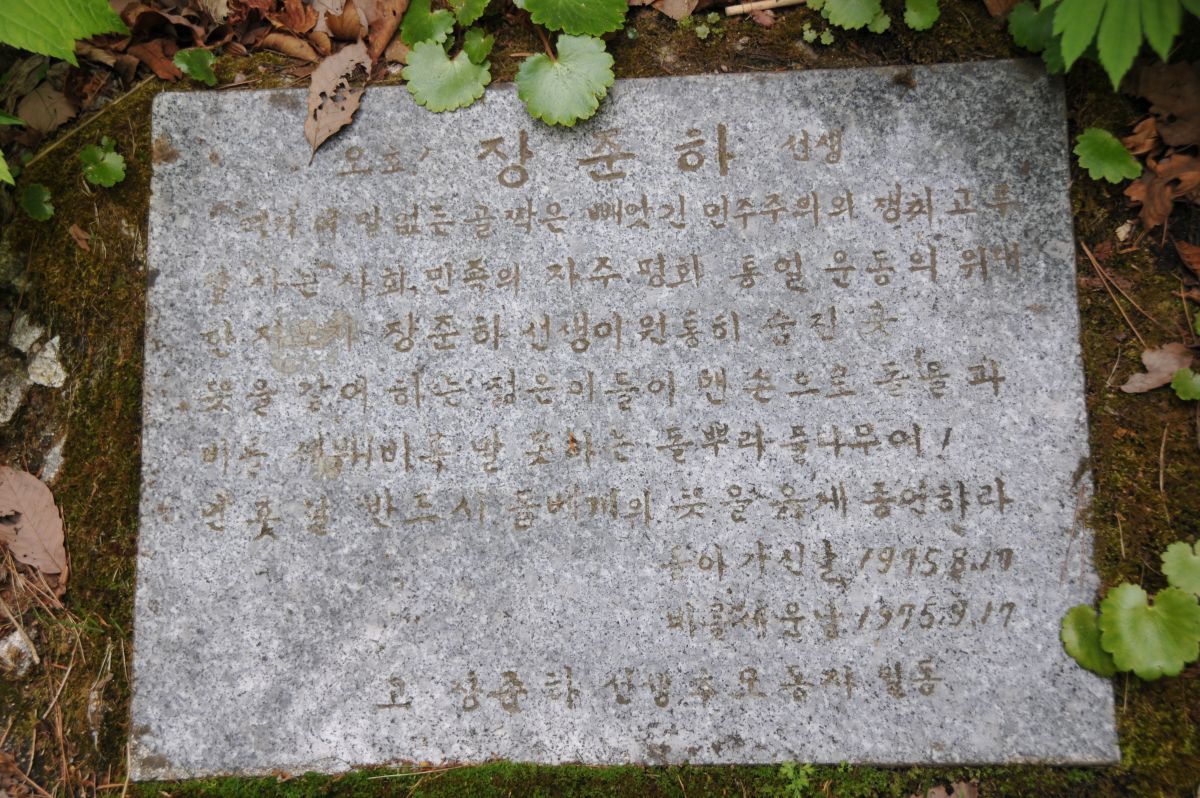 오호! 장준하 선생
이 말없는 골짝은 빼앗긴 민주주의의 쟁취 고루
잘 사는 사회, 민족의 자주·평화 통일 운동의 위대
한 장준하 선생이 원통히 숨진 곳
뜻을 같이 하는 젊은이들이 맨손으로 돌을 파
비를 세우니 비록 말 못하는 돌뿌라 풀나무여!
먼 훗날 반드시 돌베개의 뜻을 옳게 증언하라
돌아가신날 1975.8.17
비를 세운날 1975.9.17
고 장준하 선생 추모동지 일동